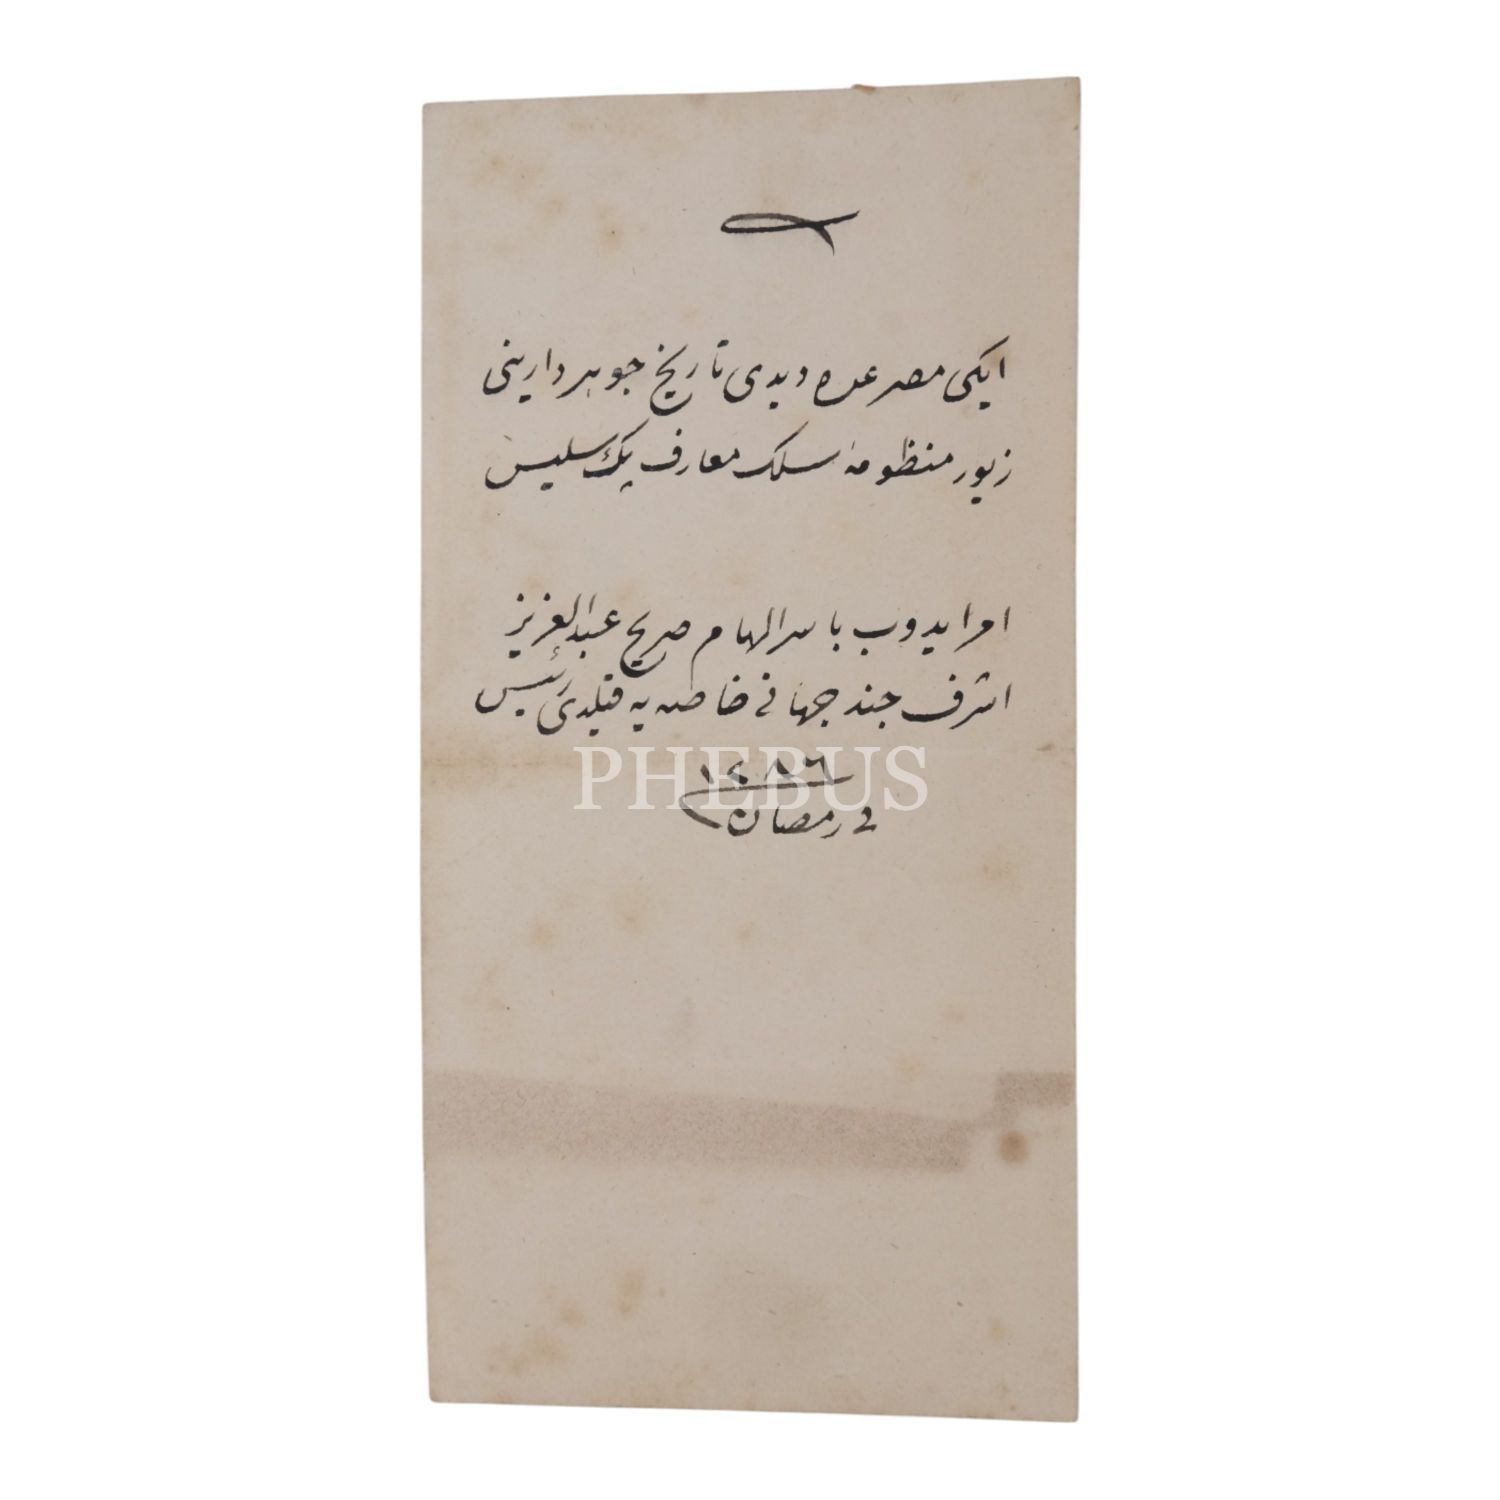 ایكی مصرعده دیدی تاریخ جوهردارینی
زیور منظومهٔ سلك معارف پك سلیس
امر ایدوب با سر الهام صریح عبدالعزیز
اشرف جند جهانی خاصه یه قیلدی رئیس
PHEBUS
١٢٨٦
فی رمضان